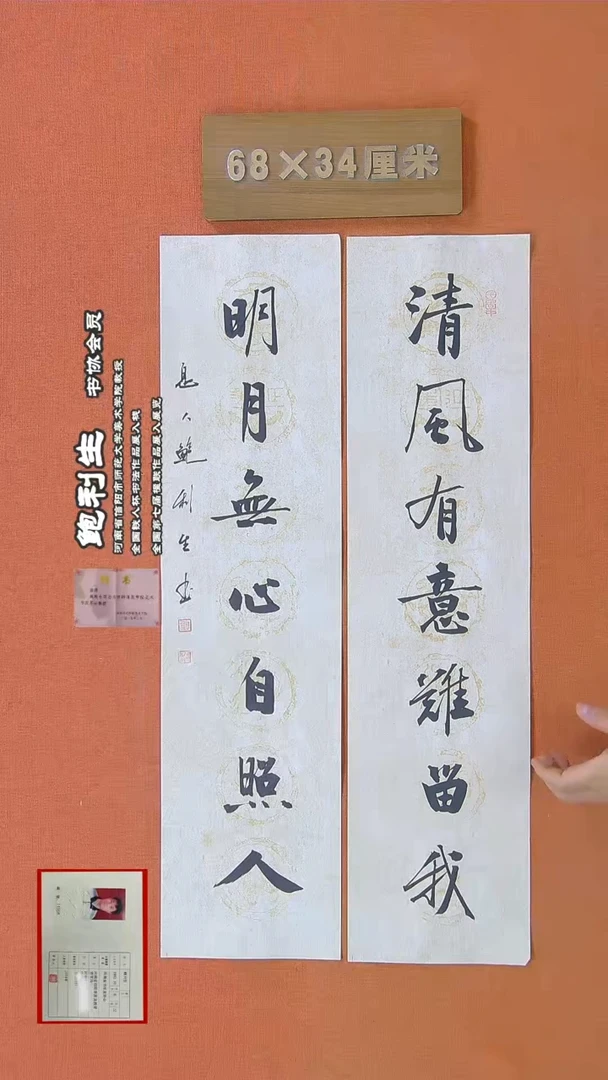 68×34厘米
清風有意難留我
明月無心自照人
息人鮑利生书
鲍利生 书协会员
河南省信阳市师范大学美术学院教授
全国魏人杯书法作品展入展
全国第七届楹联作品展入展览